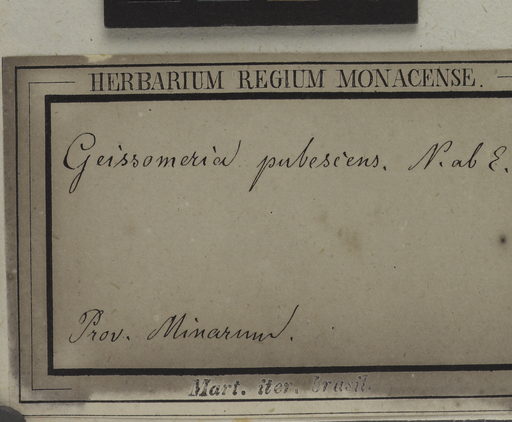 HERBARIUM REGIUM MONACENSE.
Geissomeria pubescens. N. ab E.
Prov. Minarum.
Mart. iter. brasil.